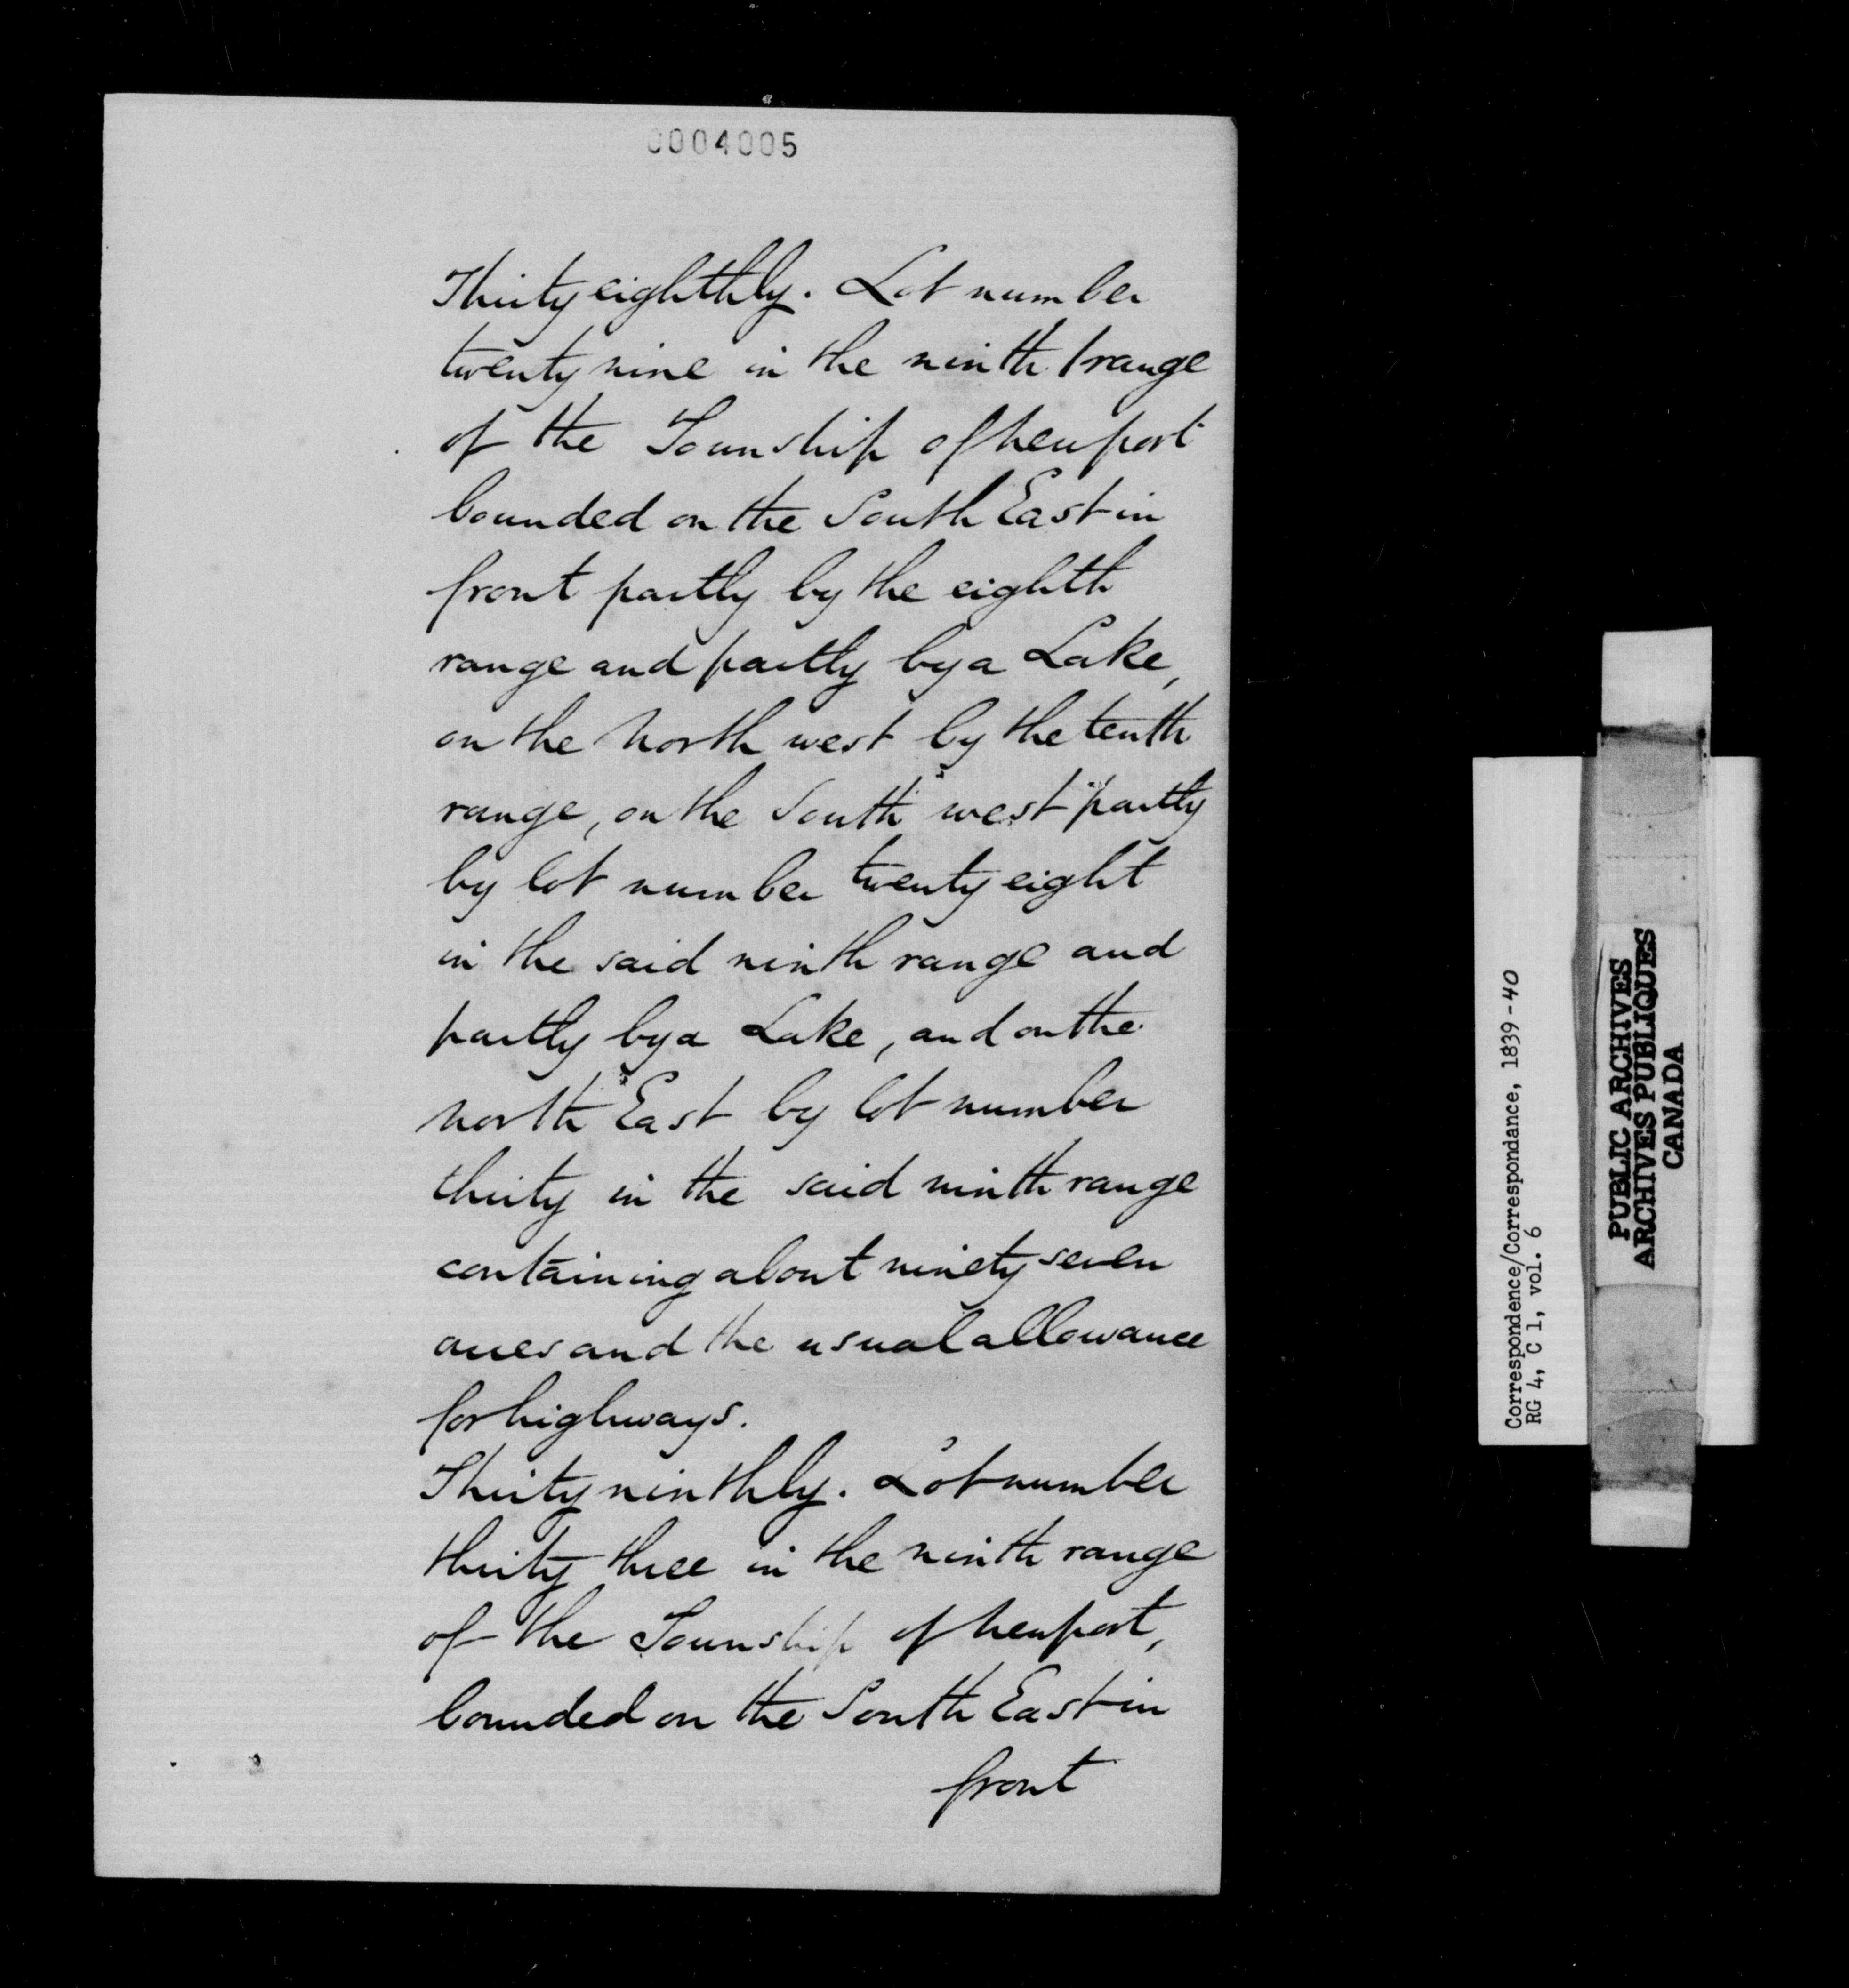 0004005
Thirty eighthly. Lot number
twenty nine in the ninth range
of the Township of Newport
bounded on the South East in
front partly by the eighth
range and partly by a Lake,
on the North west by the tenth
range, on the South west partly
by lot number twenty eight
in the said ninth range and
partly by a Lake, and on the
North East by lot number
thirty in the said ninth range
containing about ninety seven
acres and the usual allowance
for highways.
Thirty ninthly. Lot number
thirty three in the ninth range
of the Township of Newport,
bounded on the South East in
front
Correspondence/Correspondance, 1839-40
RG 4, C 1, vol. 6
PUBLIC ARCHIVES
ARCHIVES PUBLIQUES
CANADA